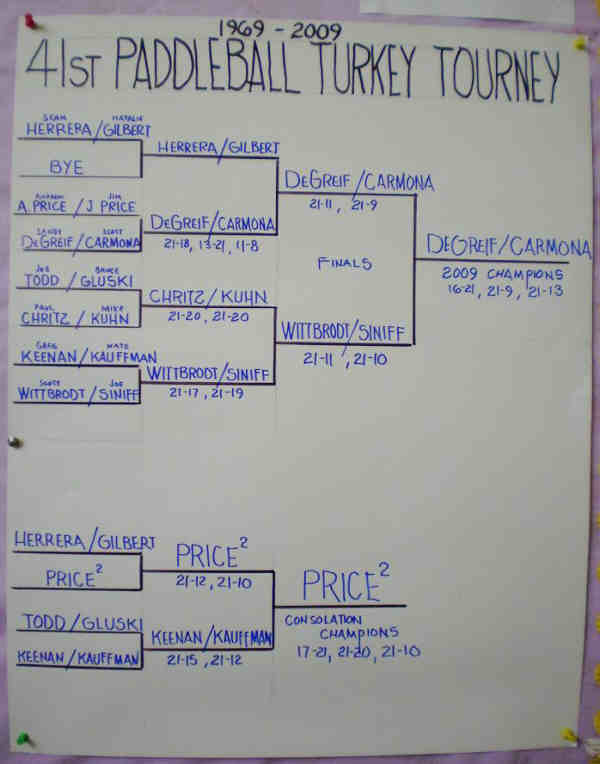 1969 - 2009
41ST PADDLEBALL TURKEY TOURNEY
SEAN NATALIE
HERRERA/GILBERT
BYE
HERRERA/GILBERT
JIM
A. PRICE / J PRICE
SANDY SCOTT
DEGREIF/CARMONA
DEGREIF/CARMONA
21-18, 13-21, 11-8
DEGREIF/CARMONA
21-11, 21-9
JOE BRUCE
TODD / GLUSKI
PAUL MIKE
CHRITZ / KUHN
CHRITZ / KUHN
21-20, 21-20
GREG NATE
KEENAN/KAUFFMAN
SCOTT JOE
WITTBRODT/SINIFF
WITTBRODT/SINIFF
21-17, 21-19
WITTBRODT/SINIFF
21-11, 21-10
FINALS
DEGREIF/CARMONA
2009 CHAMPIONS
16-21, 21-9, 21-13
HERRERA/GILBERT
PRICE²
PRICE²
21-12, 21-10
TODD/GLUSKI
KEENAN/KAUFFMAN
KEENAN/KAUFFMAN
21-15, 21-12
PRICE²
CONSOLATION
CHAMPIONS
17-21, 21-20, 21-10